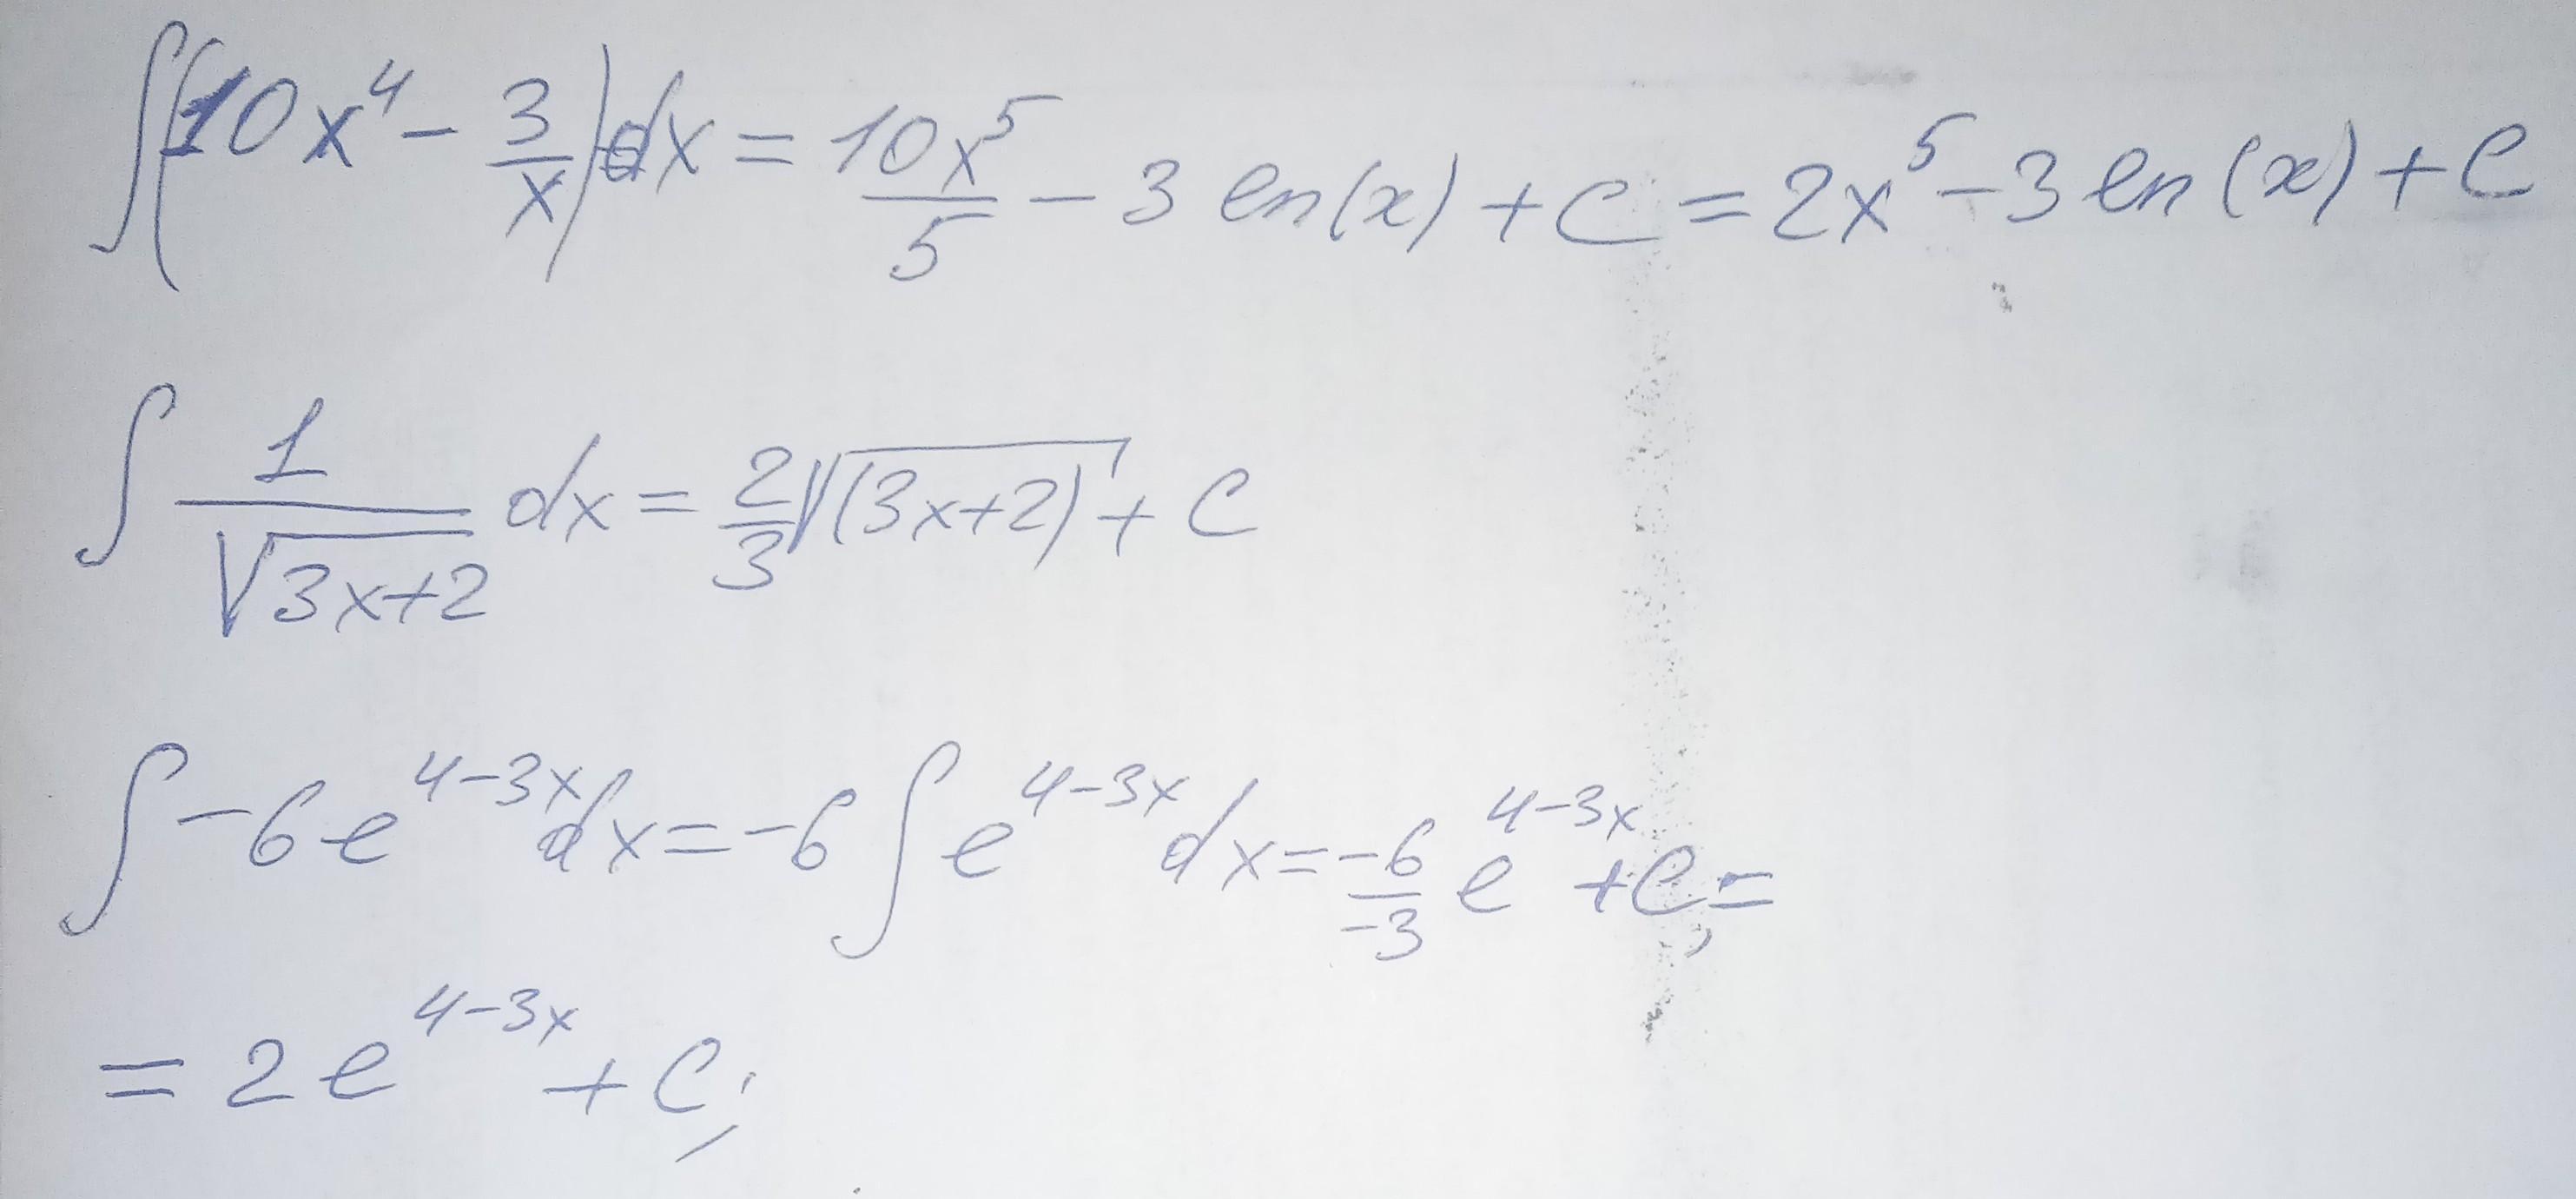 ∫(10x⁴ - 3/x)dx = 10x⁵/5 - 3 ln(x) + C = 2x⁵ - 3 ln(x) + C
∫ 1/√(3x+2) dx = 2/3 √(3x+2) + C
∫ -6e^(4-3x) dx = -6 ∫ e^(4-3x) dx = -6/-3 e^(4-3x) + C, =
= 2e^(4-3x) + C;